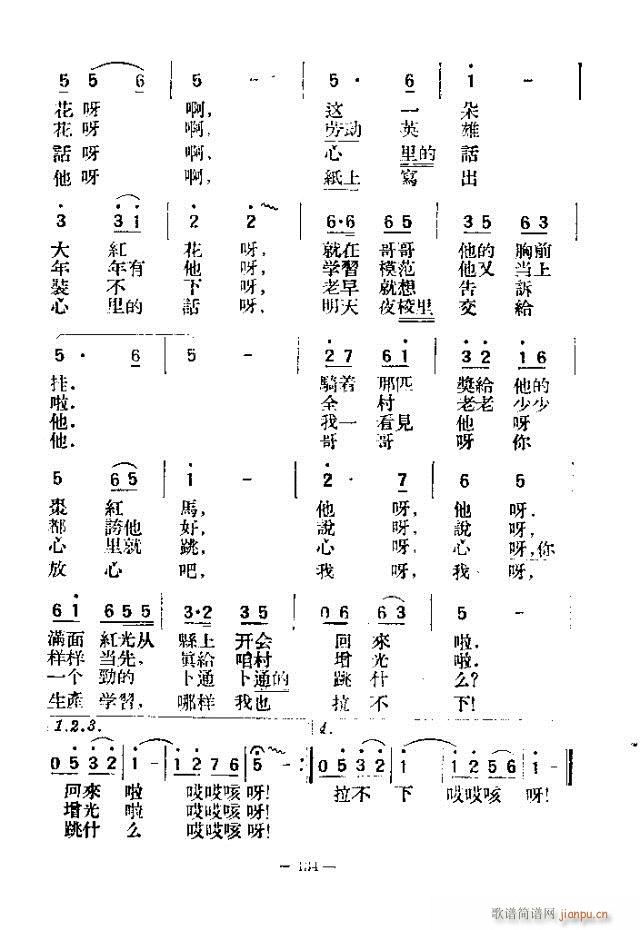 5 5 6 5 - 5 · 6 1 -
花呀 啊, 这 一 朵
花呀 啊, 劳动 英 雄
話呀 啊, 心 里的 話
他呀 啊, 紙上 寫 出
3 3 1 2 2 6·6 6 5 3 5 6 3
大 紅 花 呀, 就在 哥哥 他的 胸前
年 年有 他 呀, 学習 模范 他又 当上
裝 不 下 呀, 老早 就想 告 訴
心 里的 話 呀, 明天 夜校里 交 給
5 · 6 5 - 2 7 6 1 3 2 1 6
挂. 騎着 那匹 獎給 他的
啦. 全 村 老老 少少
他. 我一 看見 他 呀
他. 哥 哥 呀 你
5 6 5 1 - 2 · 7 6 5
棗 紅 馬, 他 呀, 他 呀.
都 誇他 好, 說 呀, 說 呀.
心 里就 跳, 心 呀, 心 呀,你
放 心 吧, 我 呀, 我 呀,
6 1 6 5 5 3·2 3 5 0 6 6 3 5 -
滿面 紅光从 縣上 开会 回 來 啦.
样样 当先, 眞給 咱村 增 光 啦.
一个 勁的 卜通 卜通的 跳 什 么?
生產 学習, 哪样 我也 拉 不 下!
1.2.3. 4.
0 5 3 2 1 - 1 2 7 6 5 - : 0 5 3 2 1 1 1 2 5 6 1 -
回來 啦 哎哎咳 呀! 拉不 下 哎哎咳 呀!
增光 啦 哎哎咳 呀!
跳什 么 哎哎咳 呀!
歌谱简谱网 jianpu.cn